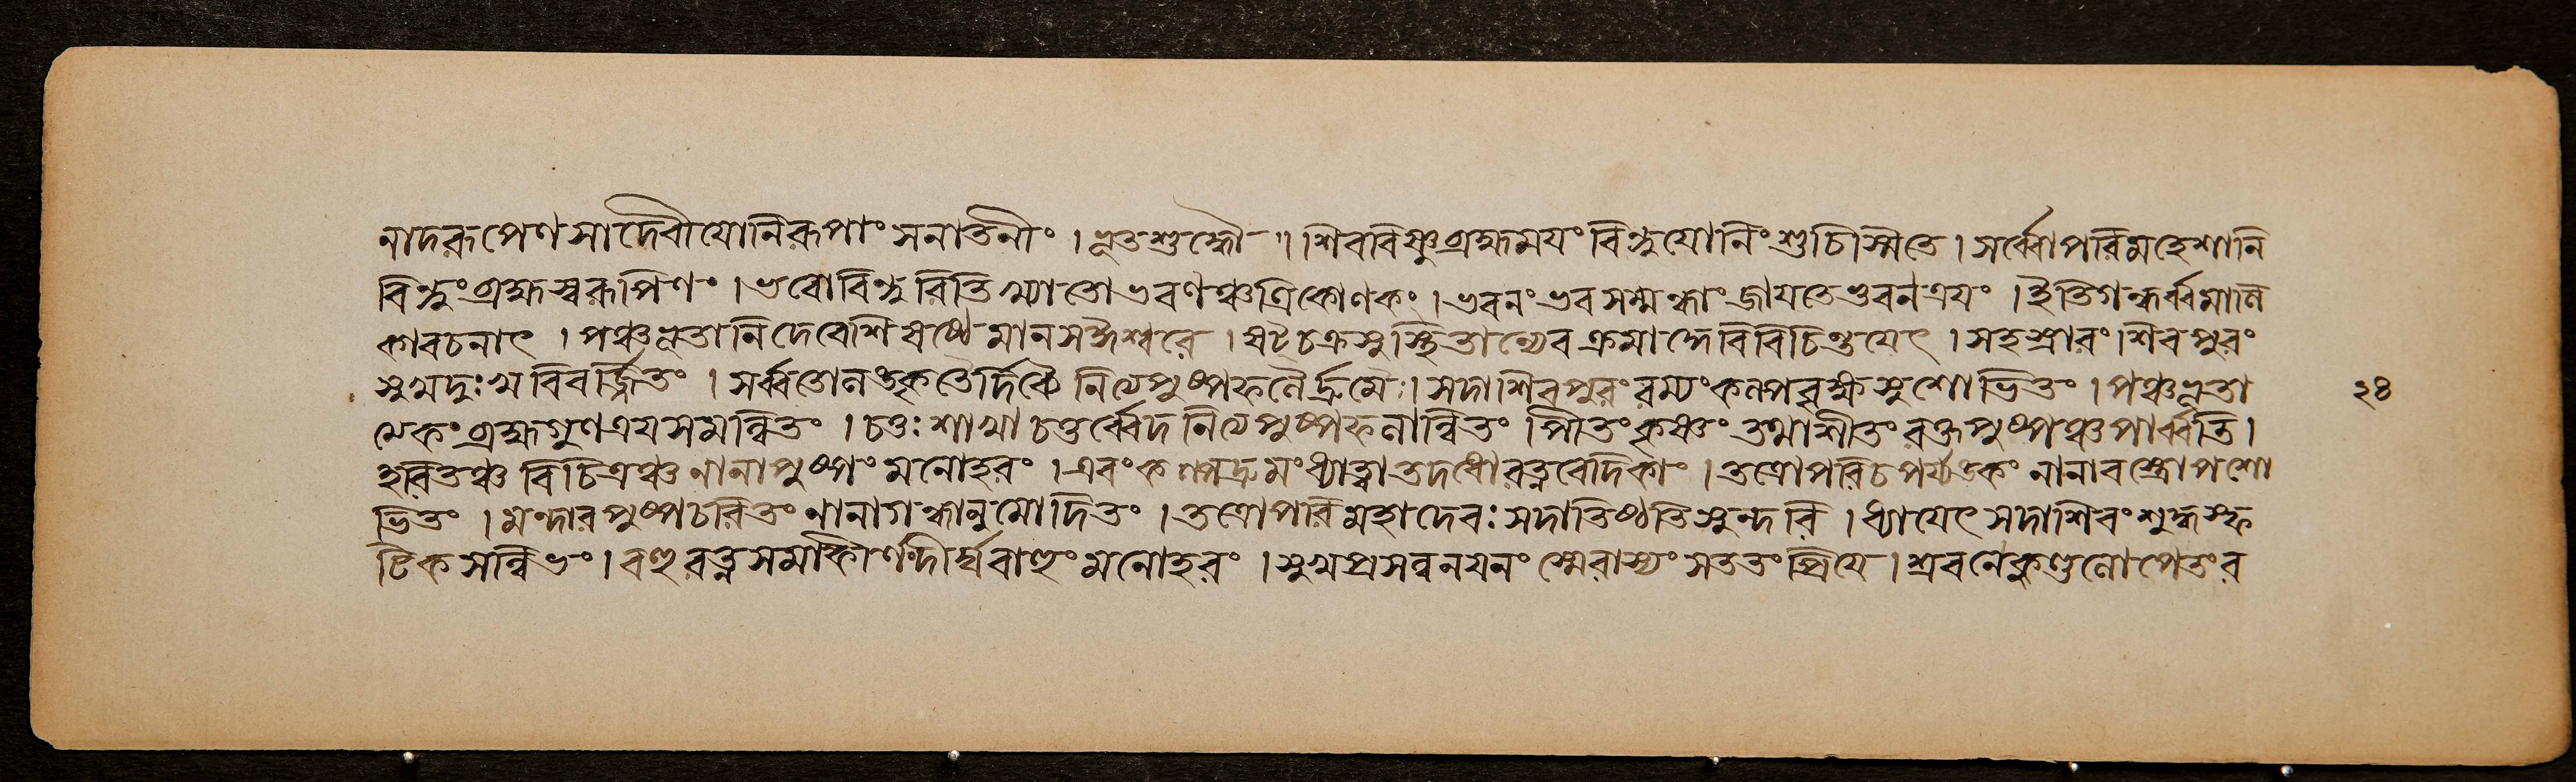 নাদরূপেণ সা দেবী যোনিরূপাং সনাতনীং । ভূতশুদ্ধৌ ॥ শিববিষ্ণুব্রহ্মময়ং বিন্দুযোনিং শুচিস্মিতে । সর্ব্বোপরি মহেশানি
বিন্দুং ব্রহ্মস্বরূপিণং । ভবো বিন্দুরিতি খ্যাতো ভবণঞ্চ ত্রিকোণকং । ভবনং ভবসম্বন্ধাং জায়তে ভুবনত্রয়ং । ইতি গন্ধর্ব্বমালি
কাবচনাৎ । পঞ্চভূতানি দেবেশি ষষ্ঠে মানসঈশ্বরে । ষটচক্রসুস্থিতান্যেব ক্রমাদ্দেবি বিচিন্তয়েৎ । সহস্রারং শিবপুরং
সুখদুঃখবিবর্জ্জিতং । সর্ব্বতোলঙ্কৃতৈর্দিব্যৈ নিত্যপুষ্পফলৈর্দ্রুমৈঃ । সদাশিবপুরং রম্যং কল্পবৃক্ষসুশোভিতং । পঞ্চভূতা
ত্মকং ব্রহ্মগুণত্রয়সমন্বিতং । চতুঃশাখা চতুর্ব্বেদ নিত্যপুষ্পফলান্বিতং পীতং কৃষ্ণং তথা শীতং রক্তপুষ্পঞ্চ পার্ব্বতি ।
হরিতঞ্চ বিচিত্রঞ্চ নানাপুষ্পং মনোহরং । এবং কল্পদ্রুমং ধ্যাত্বা তদধো রত্নবেদিকাং । তত্রোপরি চ পর্য্যঙ্কং নানাবস্ত্রোপশো
ভিতং । মন্দারপুষ্পচরিতং নানাগন্ধানুমোদিতং । তত্রোপরি মহাদেবঃ সদা তিষ্ঠতি সুন্দরি । ধ্যায়েৎ সদাশিবং শুদ্ধস্ফ
টিকসন্নিভং । বহুরত্নসমাকীর্ণং দীর্ঘবাহুং মনোহরং । সুখপ্রসন্ননয়নং স্মেরাস্যং সততং প্রিয়ে । শ্রবনে কুণ্ডলোপেতং র
২৪